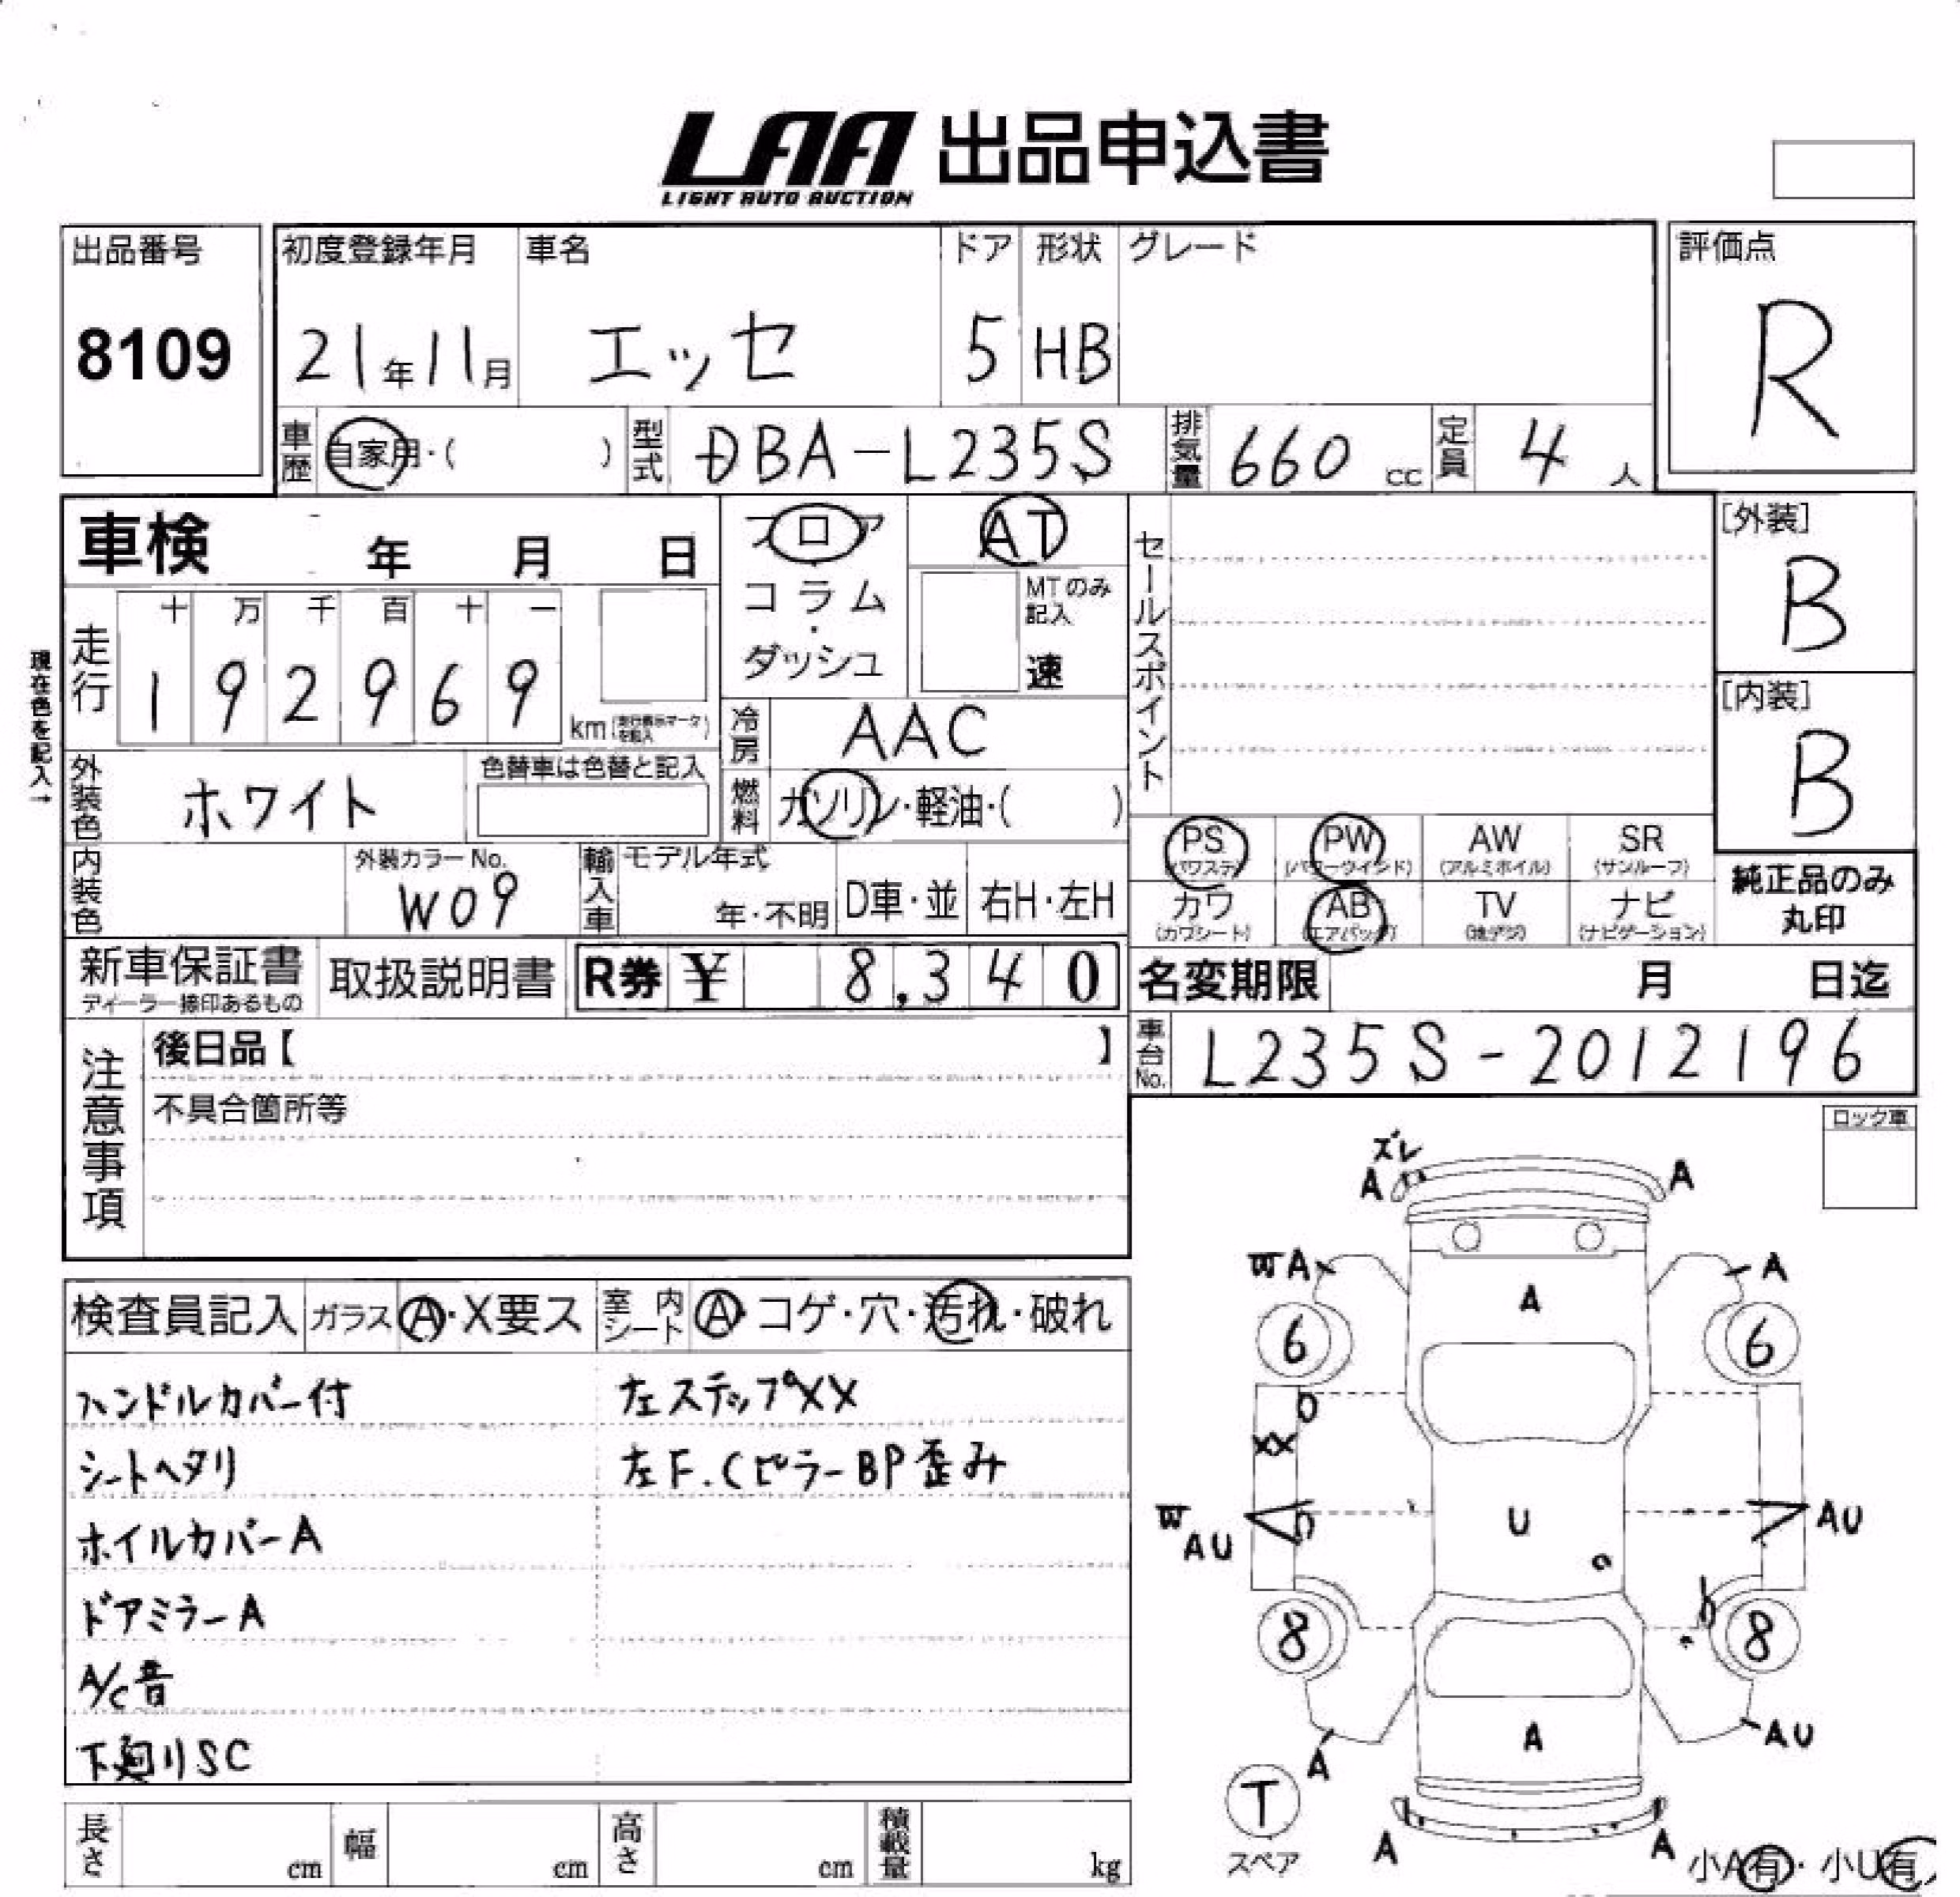 LAA 出品申込書
LIGHT AUTO AUCTION
出品番号 初度登録年月 車名 ドア 形状 グレード 評価点
8109 21年11月 エッセ 5 HB R
車歴 自家用・( ) 型式 DBA-L235S 排気量 660 cc 定員 4 人
車検 年 月 日 フロア AT セールスポイント [外装]
コラム・ MTのみ記入 B
ダッシュ 速
現在色を記入→
走行 十 万 千 百 十 一
1 9 2 9 6 9 km [内装]
冷房 AAC B
外装色 ホワイト 色替車は色替と記入 燃料 ガソリン・軽油・( )
PS PW AW SR
(パワステ) (パワーウインド) (アルミホイル) (サンルーフ)
内装色 外装カラーNo. W09 輸入車 モデル年式 年・不明 D車・並 右H・左H
カワ AB TV ナビ 純正品のみ丸印
(カワシート) (エアバッグ) (地デジ) (ナビゲーション)
新車保証書 取扱説明書 R券 ¥ 8,340 名変期限 月 日迄
ディーラー捺印あるもの
車台No. L235S-2012196
注意事項 後日品【 】
不具合箇所等
ロック車
検査員記入 ガラス A・X要ス 室内シート A・コゲ・穴・汚れ・破れ
ハンドルカバー付 左ステップXX
シートヘタリ 左F.CピラーBP歪み
ホイルカバーA
ドアミラーA
A/C音
下廻りSC
ズレ
A A
W A A
A
6 6
XX
W AU U AU
8 8
A A AU
T
スペア
A A
小A有・小U有
長さ cm 幅 cm 高さ cm 積載量 kg